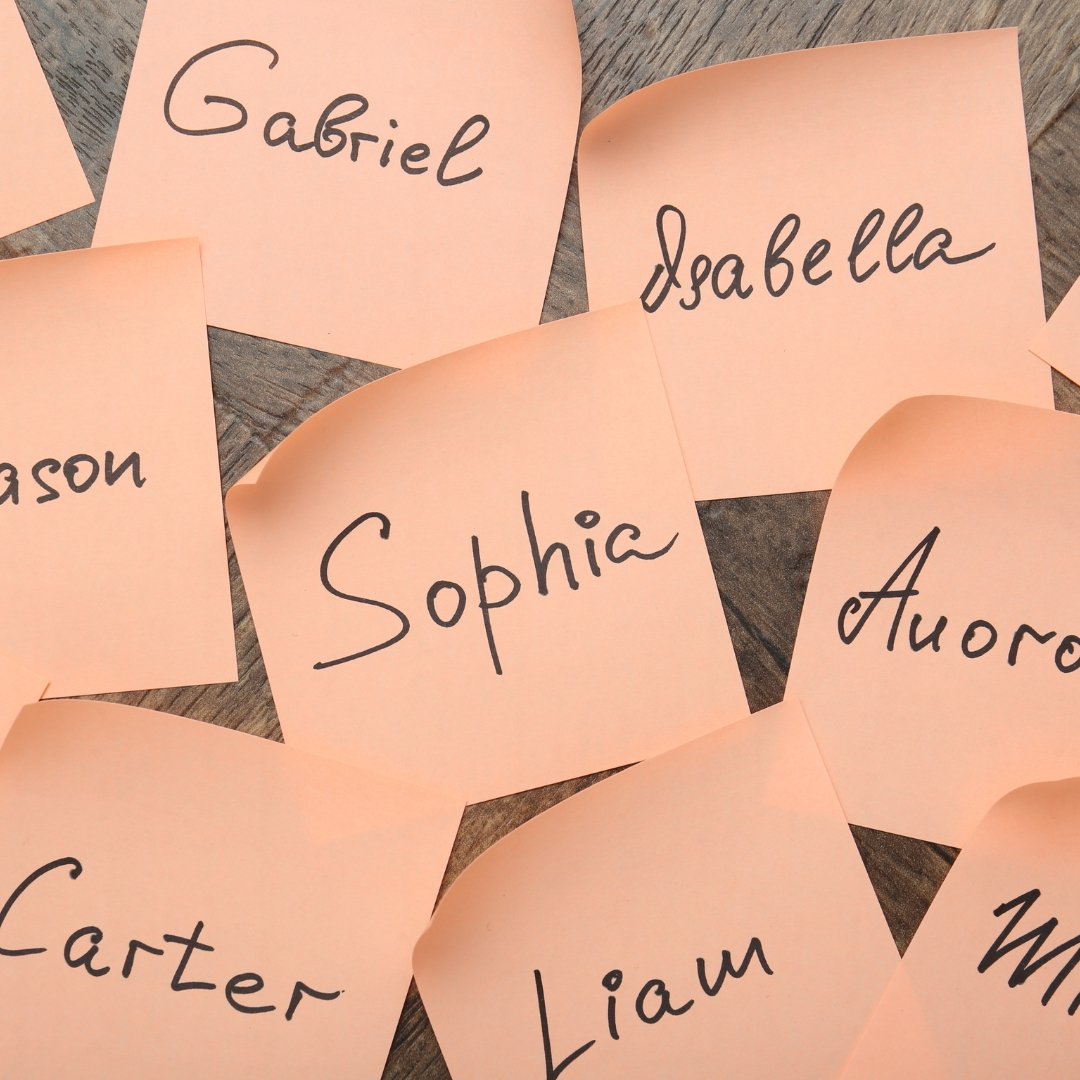 Gabriel
Isabella
ason
Sophia
Auoro
Carter
Liam